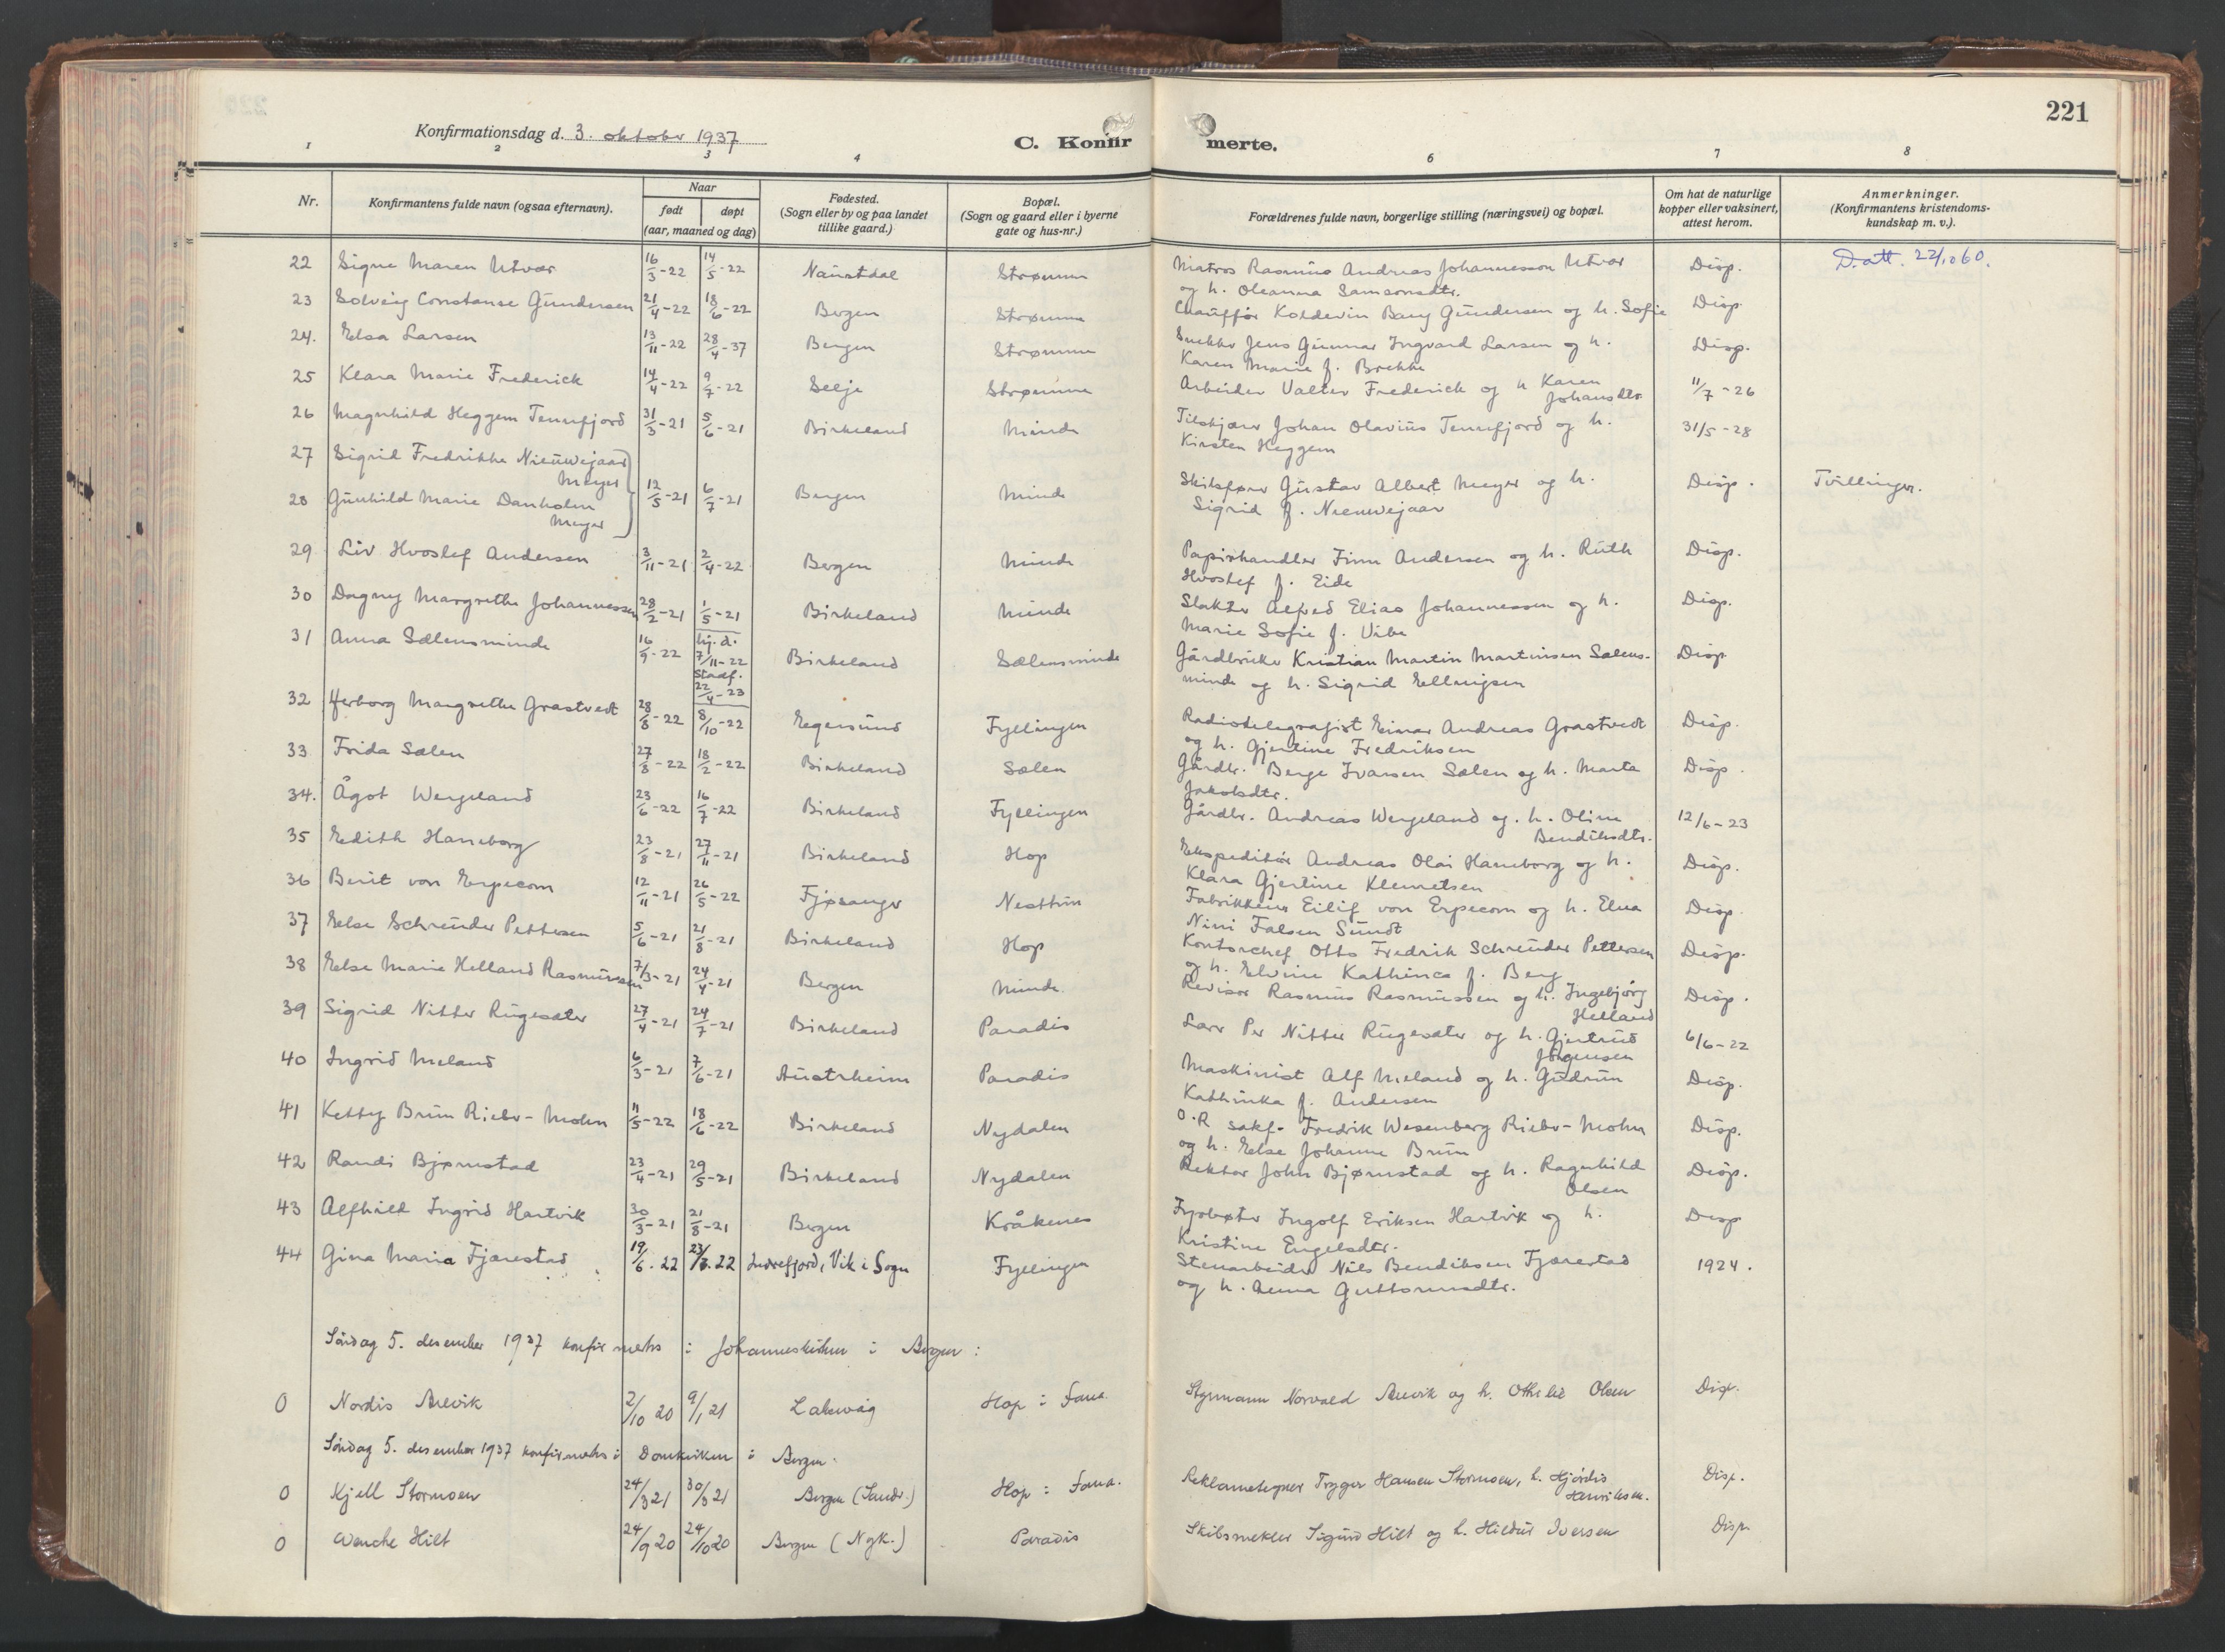 221
Konfirmationsdag d. 3. oktober 1937
C. Konfir merte.
1 2 3 4 6 7 8
Nr.
Konfirmantens fulde navn (ogsaa efternavn).
Naar
født døpt
(aar, maaned og dag)
Fødested.
(Sogn eller by og paa landet
tillike gaard.)
Bopæl.
(Sogn og gaard eller i byerne
gate og hus-nr.)
Forældrenes fulde navn, borgerlige stilling (næringsvei) og bopæl.
Om hat de naturlige
kopper eller vaksinert,
attest herom.
Anmerkninger.
(Konfirmantens kristendoms-
kundskap m. v.).
22 Signe Maren Utvær 16/3-22 14/5-22 Naustdal Strømme Matros Rasmus Andreas Johannesson Utvær Disp. D.att. 22/10 60.
og h. Oleanna Samsonsdtr.
23 Solveig Constanse Gundersen 21/4-22 18/6-22 Bergen Strømme Chauffør Koldevin Bang Gundersen og h. Sofie Disp
24. Elsa Larsen 13/11-22 28/4-37 Bergen Strømme Snekker Jens Gunnar Ingvard Larsen og h. Disp.
Karen Marie f. Brekke
25 Klara Marie Frederick 14/4-22 9/7-22 Selje Strømme Arbeider Valter Frederick og h Karen 11/7-26
Johansdtr
26 Magnhild Heggem Tennfjord 31/3-21 5/6-21 Birkeland Minde Johan Olavius Tennfjord og h. 31/5-28
Kirsten Heggem
27 Sigrid Fredrikke Nieuwejaar
Meyer 12/5-21 6/7-21 Bergen Minde Skibsfører Gustav Albert Meyer og h. Disp. Tvillinger.
28 Gunhild Marie Danholm
Meyer
Sigrid f. Nieuwejaar
29 Liv Hvoslef Andersen 3/11-21 2/4-22 Bergen Minde Papirhandler Finn Andersen og h. Ruth Disp.
Hvoslef f. Eide
30 Dagny Margrethe Johannessen 28/2-21 1/5-21 Birkeland Minde Slakter Alfred Elias Johannessen og h. Disp.
Marie Sofie f. Vibe
31 Anna Sælensminde 16/9-22 hj.d. 7/11-22 stadf. 22/4-23 Birkeland Sælensminde Gårdbruker Kristian Martin Martinsen Sælens- Disp
minde og h. Sigrid Ellingsen
32 Herborg Margrethe Grastvedt 28/8-22 8/10-22 Egersund Fyllingen Radiotelegrafist Einar Andreas Grastvedt Disp.
og h. Gjertine Fredriksen
33 Frida Sælen 27/8-22 18/2-22 Birkeland Sælen Gårdbr. Berge Ivarsen Sælen og h. Marta Disp.
Jakobsdtr.
34. Ågot Wergeland 23/6-22 16/7-22 Birkeland Fyllingen Gårdbr. Andreas Wergeland og h. Oline 12/6-23
Bendiksdtr.
35 Edith Haneborg 23/8-21 27/11-21 Birkeland Hop Ekspeditør Andreas Olai Haneborg og h. Disp.
Klara Gjertine Klemetsen
36 Berit von Erpecom 12/11-21 26/5-22 Fjøsanger Nesttun Fabrikkeier Eilif von Erpecom og h. Elna Disp.
Nini Falsen Sundt
37 Else Schreuder Pettersen 5/6-21 21/8-21 Birkeland Hop Kontorchef Otto Fredrik Schreuder Pettersen Disp.
og h. Elvine Kathinca f. Berg
38 Else Marie Helland Rasmussen 7/3-21 24/4-21 Bergen Minde Revisor Rasmus Rasmussen og h. Ingebjørg Disp.
Helland
39 Sigrid Nitter Rugesæter 27/4-21 24/7-21 Birkeland Paradis Lærer Per Nitter Rugesæter og h. Gjertrud 6/6-22
Jörgensen
40 Ingrid Meland 6/3-21 7/6-21 Austrheim Paradis Maskinist Alf Meland og h. Gudrun Disp.
Kathinka f. Andersen
41 Ketty Brun Rieber-Mohn 11/5-22 18/6-22 Birkeland Nydalen O.R sakf. Fredrik Wesenberg Rieber-Mohn Disp.
og h. Else Johanne Brun
42 Randi Bjørnstad 23/4-21 29/5-21 Birkeland Nydalen Rektor John Bjørnstad og h. Ragnhild Disp.
Olsen
43 Alfhild Ingrid Hartvik 30/3-21 21/8-21 Bergen Kråkenes Fyrbøter Ingolf Eriksen Hartvik og h. Disp
Kristine Engelsdtr.
44 Gina Maria Fjærestad 19/6.22 Indrefjord, Vik i Sogn Fyllingen Stenarbeider Nils Bendiksen Fjærestad 1924.
og h. Anna Guttormsdtr.
Søndag 5. desember 1937 konfirmerts i Johanneskirken i Bergen:
0 Nordis Alevik 2/10 20 9/1 21 Laksevåg Hop i Fana. Styrmann Norvald Alevik og h. Othilie Olsen Disp.
Søndag 5. desember 1937 konfirmerts i Domkirken i Bergen.
0 Kjell Stormoen 24/3 21 30/3 21 Bergen (Sandv.) Hop i Fana. Reklametegner Trygger Hansen Stormoen, h. Hjørdis Disp.
Henriksen.
0 Wenche Hilt 24/9 20 24/10 20 Bergen (Nyk.) Paradis Skibsmekler Sigurd Hilt og h. Hildur Iversen Disp.